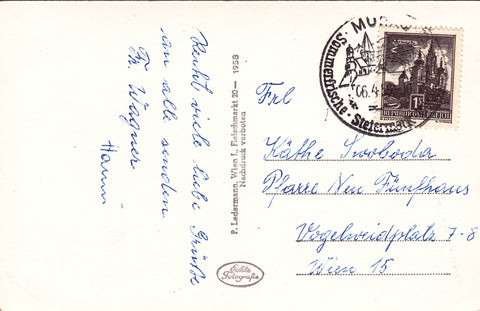 Recht viele liebe Grüße
an alle senden
Fr. Wagner
Hanni
P. Ledermann, Wien I., Fleischmarkt 20 — 1958
Nachdruck verboten
Echte
Fotografie
Sommerfrische · Steiermark
06.4.
1S
REPUBLIK ÖSTERREICH
Frl
Käthe Swoboda
Pfarre Neu Fünfhaus
Vogelweidplatz 7-8
Wien 15